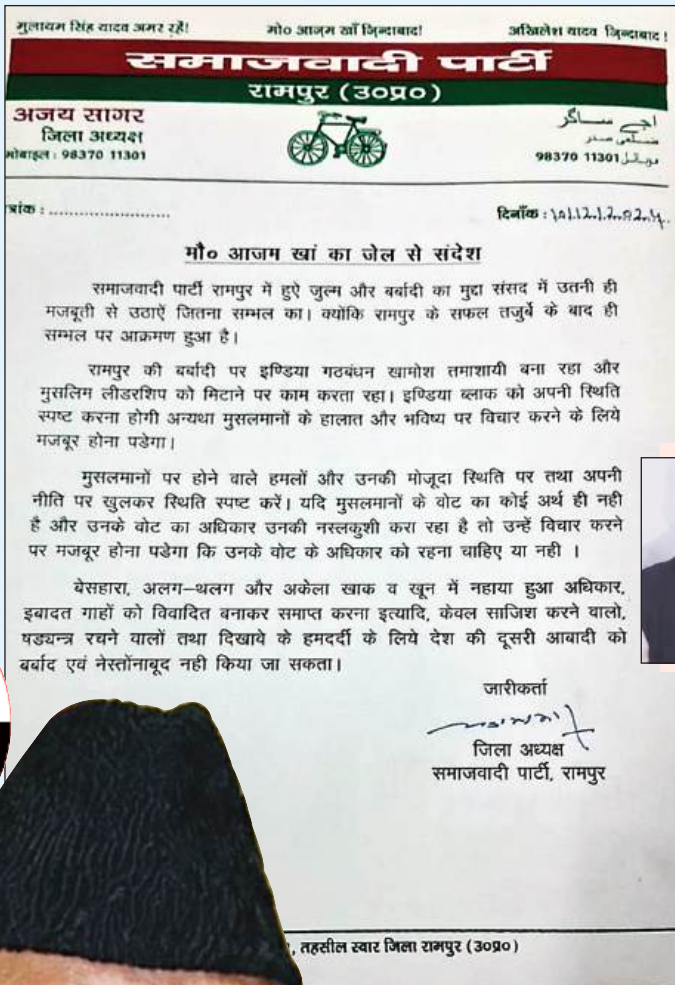 मुलायम सिंह यादव अमर रहें!
मो० आज़म खाँ ज़िन्दाबाद!
अखिलेश यादव ज़िन्दाबाद!
समाजवादी पार्टी
रामपुर (उ०प्र०)
अजय सागर
जिला अध्यक्ष
मोबाइल : 98370 11301
اجے ساگر
ضلعی صدر
موبائل 98370 11301
त्रांक : ........................
दिनाँक :
मौ० आजम खां का जेल से संदेश
समाजवादी पार्टी रामपुर में हुऐ जुल्म और बर्बादी का मुद्दा संसद में उतनी ही
मजबूती से उठाऐं जितना सम्भल का। क्योंकि रामपुर के सफल तजुर्बे के बाद ही
सम्भल पर आक्रमण हुआ है।
रामपुर की बर्बादी पर इण्डिया गठबंधन खामोश तमाशायी बना रहा और
मुसलिम लीडरशिप को मिटाने पर काम करता रहा। इण्डिया ब्लाक को अपनी स्थिति
स्पष्ट करना होगी अन्यथा मुसलमानों के हालात और भविष्य पर विचार करने के लिये
मजबूर होना पडेगा।
मुसलमानों पर होने वाले हमलों और उनकी मोजूदा स्थिति पर तथा अपनी
नीति पर खुलकर स्थिति स्पष्ट करें। यदि मुसलमानों के वोट का कोई अर्थ ही नही
है और उनके वोट का अधिकार उनकी नस्लकुशी करा रहा है तो उन्हें विचार करने
पर मजबूर होना पडेगा कि उनके वोट के अधिकार को रहना चाहिए या नही ।
बेसहारा, अलग–थलग और अकेला खाक व खून में नहाया हुआ अधिकार,
इबादत गाहों को विवादित बनाकर समाप्त करना इत्यादि, केवल साजिश करने वालो,
षडयन्त्र रचने वालों तथा दिखावे के हमदर्दी के लिये देश की दूसरी आबादी को
बर्बाद एवं नेस्तोंनाबूद नही किया जा सकता।
जारीकर्ता
जिला अध्यक्ष
समाजवादी पार्टी, रामपुर
, तहसील स्वार जिला रामपुर (उ०प्र०)